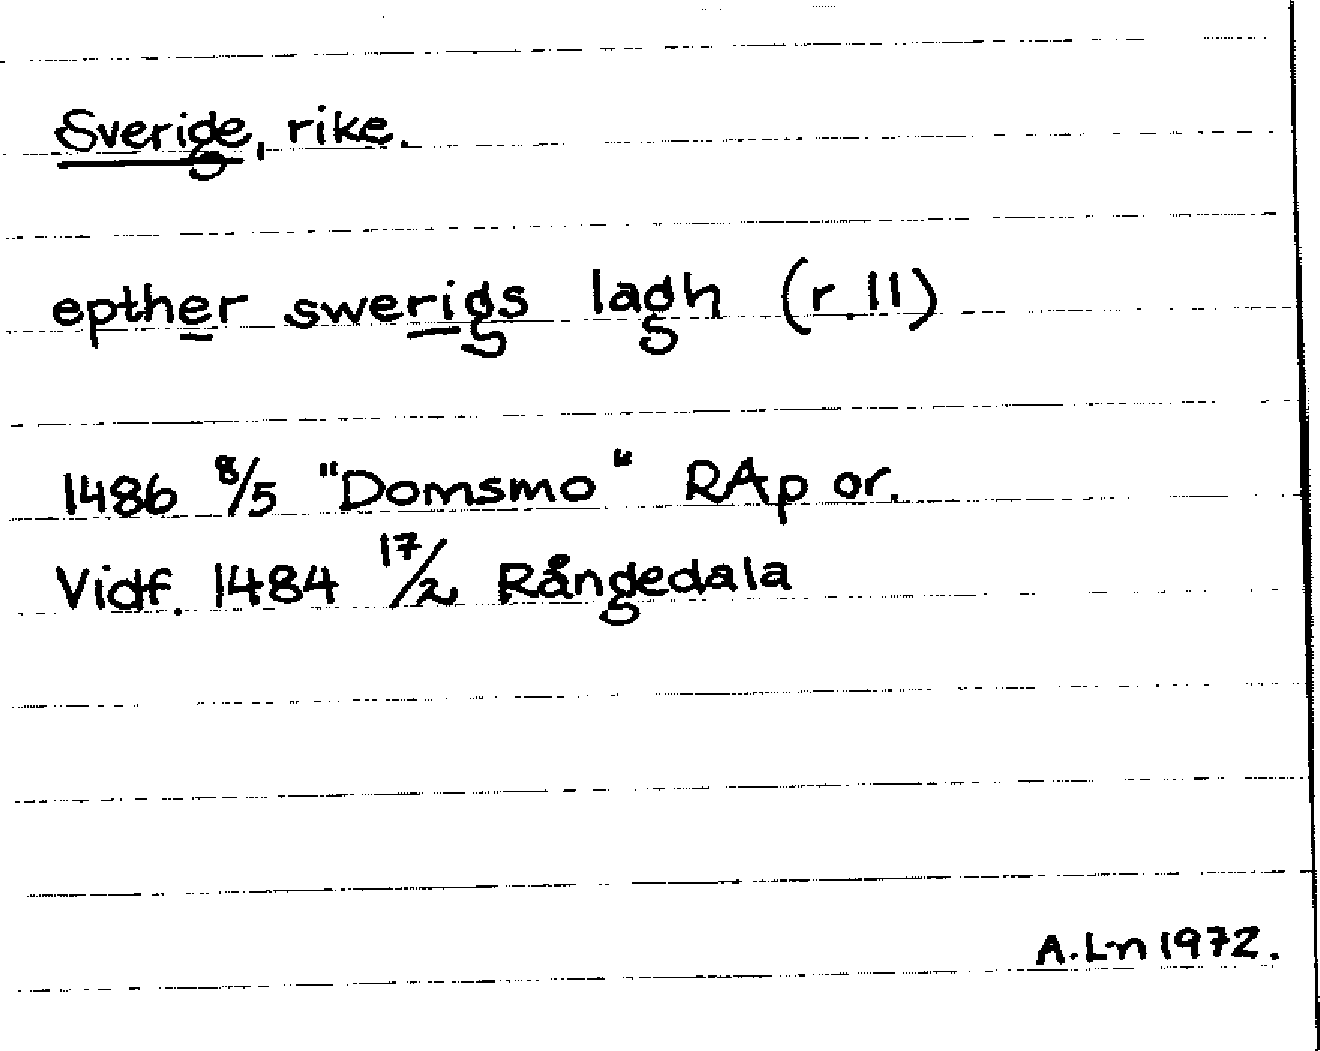 Sverige, rike.
epther swerigs lagh (r. 11)
1486 8/5 "Domsmo" RAp or.
Vidf. 1484 17/2 Rångedala
A.L-n 1972.